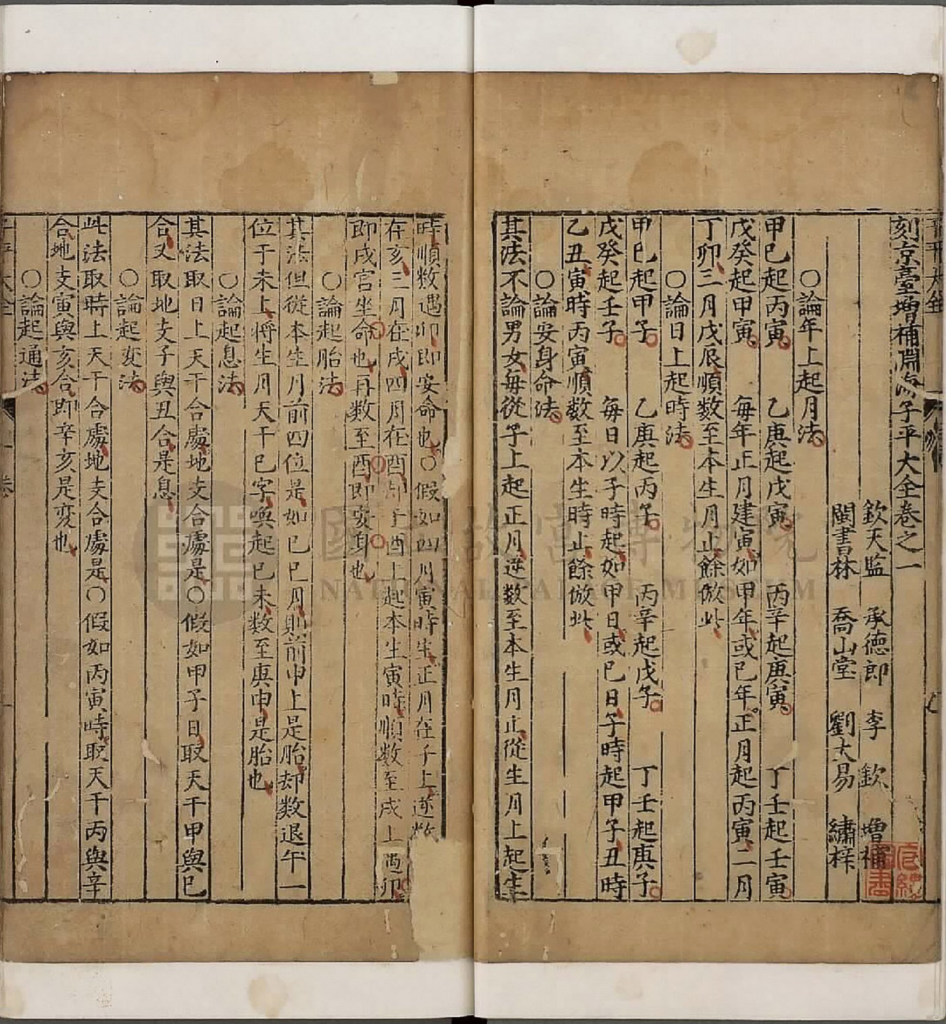 刻京臺增補淵海子平大全卷之一
欽天監 承德郎 李 欽 增補
閩書林 喬山堂 劉大易 繡梓
○論年上起月法
甲巳起丙寅 乙庚起戊寅 丙辛起庚寅 丁壬起壬寅
戊癸起甲寅 每年正月建寅如甲年或巳年正月起丙寅二月
丁卯三月戊辰順數至本生月止餘倣此
○論日上起時法
甲巳起甲子 乙庚起丙子 丙辛起戊子 丁壬起庚子
戊癸起壬子 每日以子時起如甲日或巳日子時起甲子丑時
乙丑寅時丙寅順數至本生時止餘倣此
○論安身命法
其法不論男女每從子上起正月逆数至本生月止從生月上起生
時順数遇卯即安命也○假如四月寅時生正月在子上逆数
在亥三月在戌四月在酉却于酉上起本生寅時順數至戌上遇卯
即戌宮坐命也再数至酉即安身也
○論起胎法
其法但從本生月前四位是如巳巳月則前申上是胎却数退午一
位于未上將生月天干巳字喚起巳未数至庚申是胎也
○論起息法
其法取日上天干合處地支合處是○假如甲子日取天干甲與巳
合又取地支子與丑合是息
○論起変法
此法取時上天干合處地支合處是○假如丙寅時取天干丙與辛
合地支寅與亥合即辛亥是変也
○論起通法
國立故宮博物院
NATIONAL PALACE MUSEUM